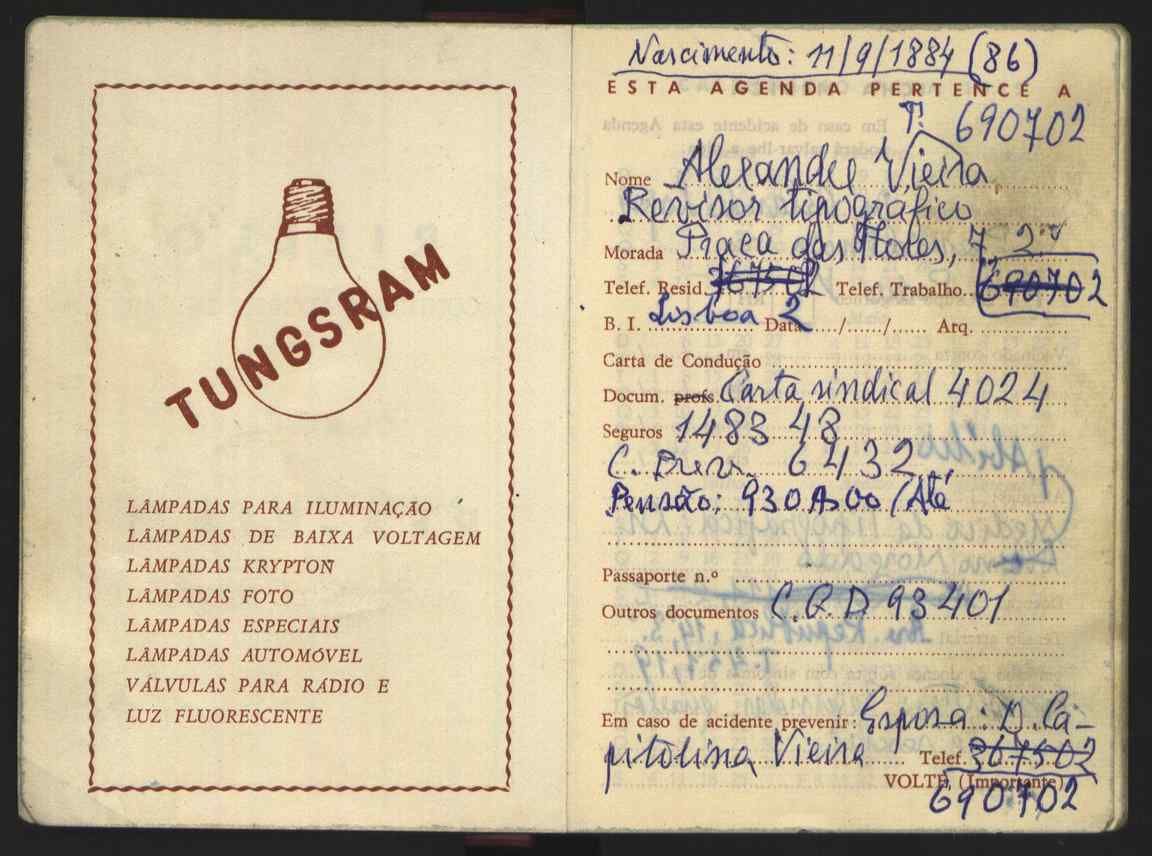 TUNGSRAM
LÂMPADAS PARA ILUMINAÇÃO
LÂMPADAS DE BAIXA VOLTAGEM
LÂMPADAS KRYPTON
LÂMPADAS FOTO
LÂMPADAS ESPECIAIS
LÂMPADAS AUTOMÓVEL
VÁLVULAS PARA RÁDIO E
LUZ FLUORESCENTE
Nascimento: 11/9/1884 (86)
ESTA AGENDA PERTENCE A
T. 690702
Nome Alexandre Vieira
Revisor tipográfico
Morada Praça das Flores, 7 2º
Telef. Resid. 367502 Telef. Trabalho 690702
B. I. Lisboa 2 Data ..../....../...... Arq.
Carta de Condução
Docum. profs. Carta sindical 4024
Seguros 1483 48
C. Prev. 6432
Pensão: 930$00 (Até
Passaporte n.º
Outros documentos 93401
Em caso de acidente prevenir: Esposa: D. Ca-
pitolina Vieira Telef. 367502
VOLTE, (Importante)
690702